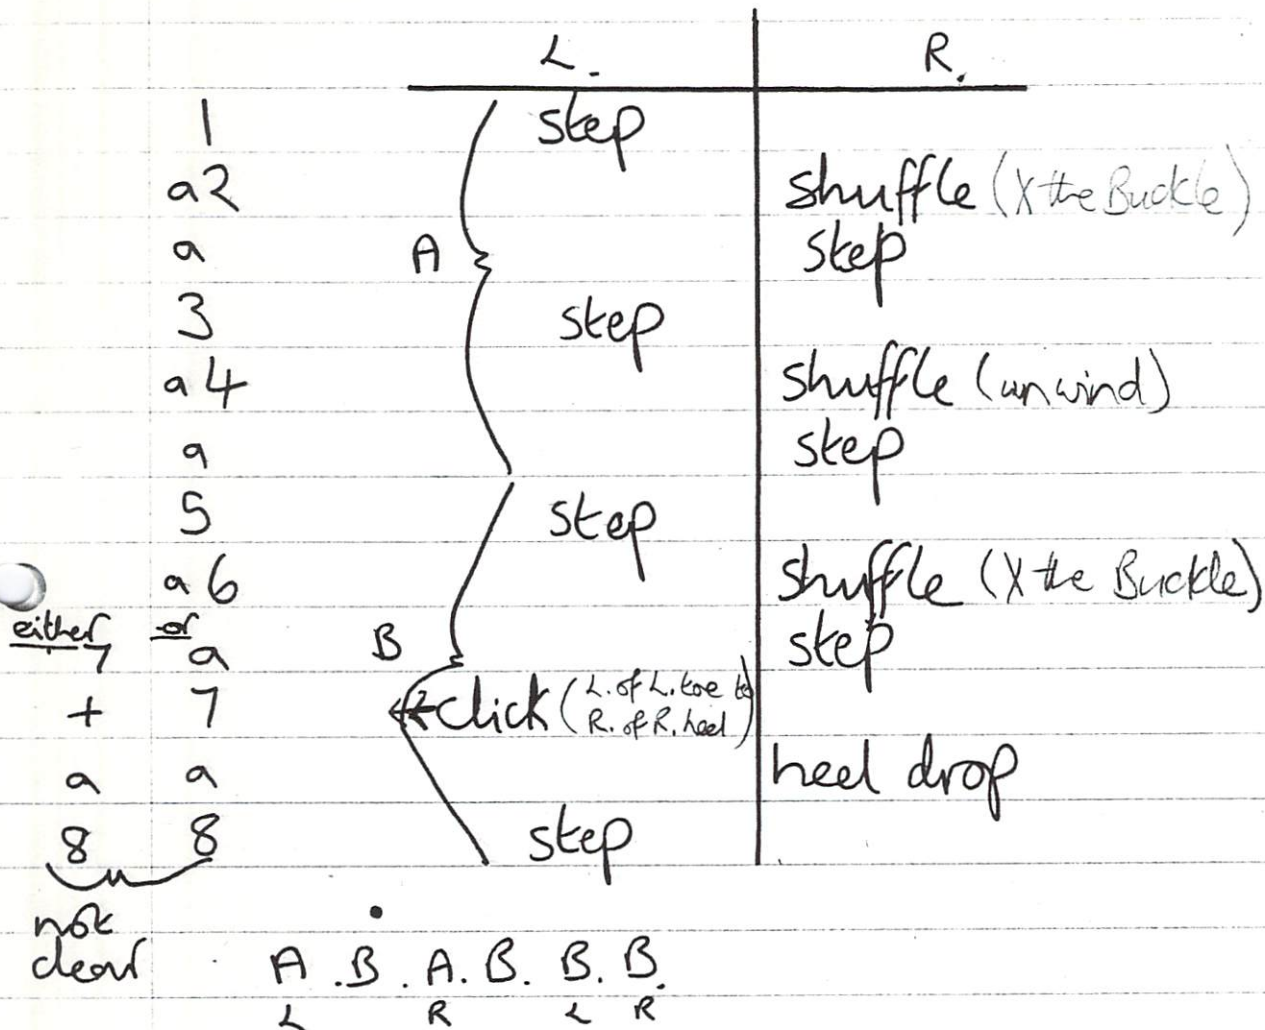 L. R.
1 step
a2 shuffle (X the Buckle)
a step
A
3 step
a4 shuffle (unwind)
a step
5 step
a6 shuffle (X the Buckle)
either or
7 a step
B
+ 7 click (L. of L. toe to
R. of R. heel)
a a heel drop
8 8 step
not
clear
A . B . A . B. B. B.
L R L R